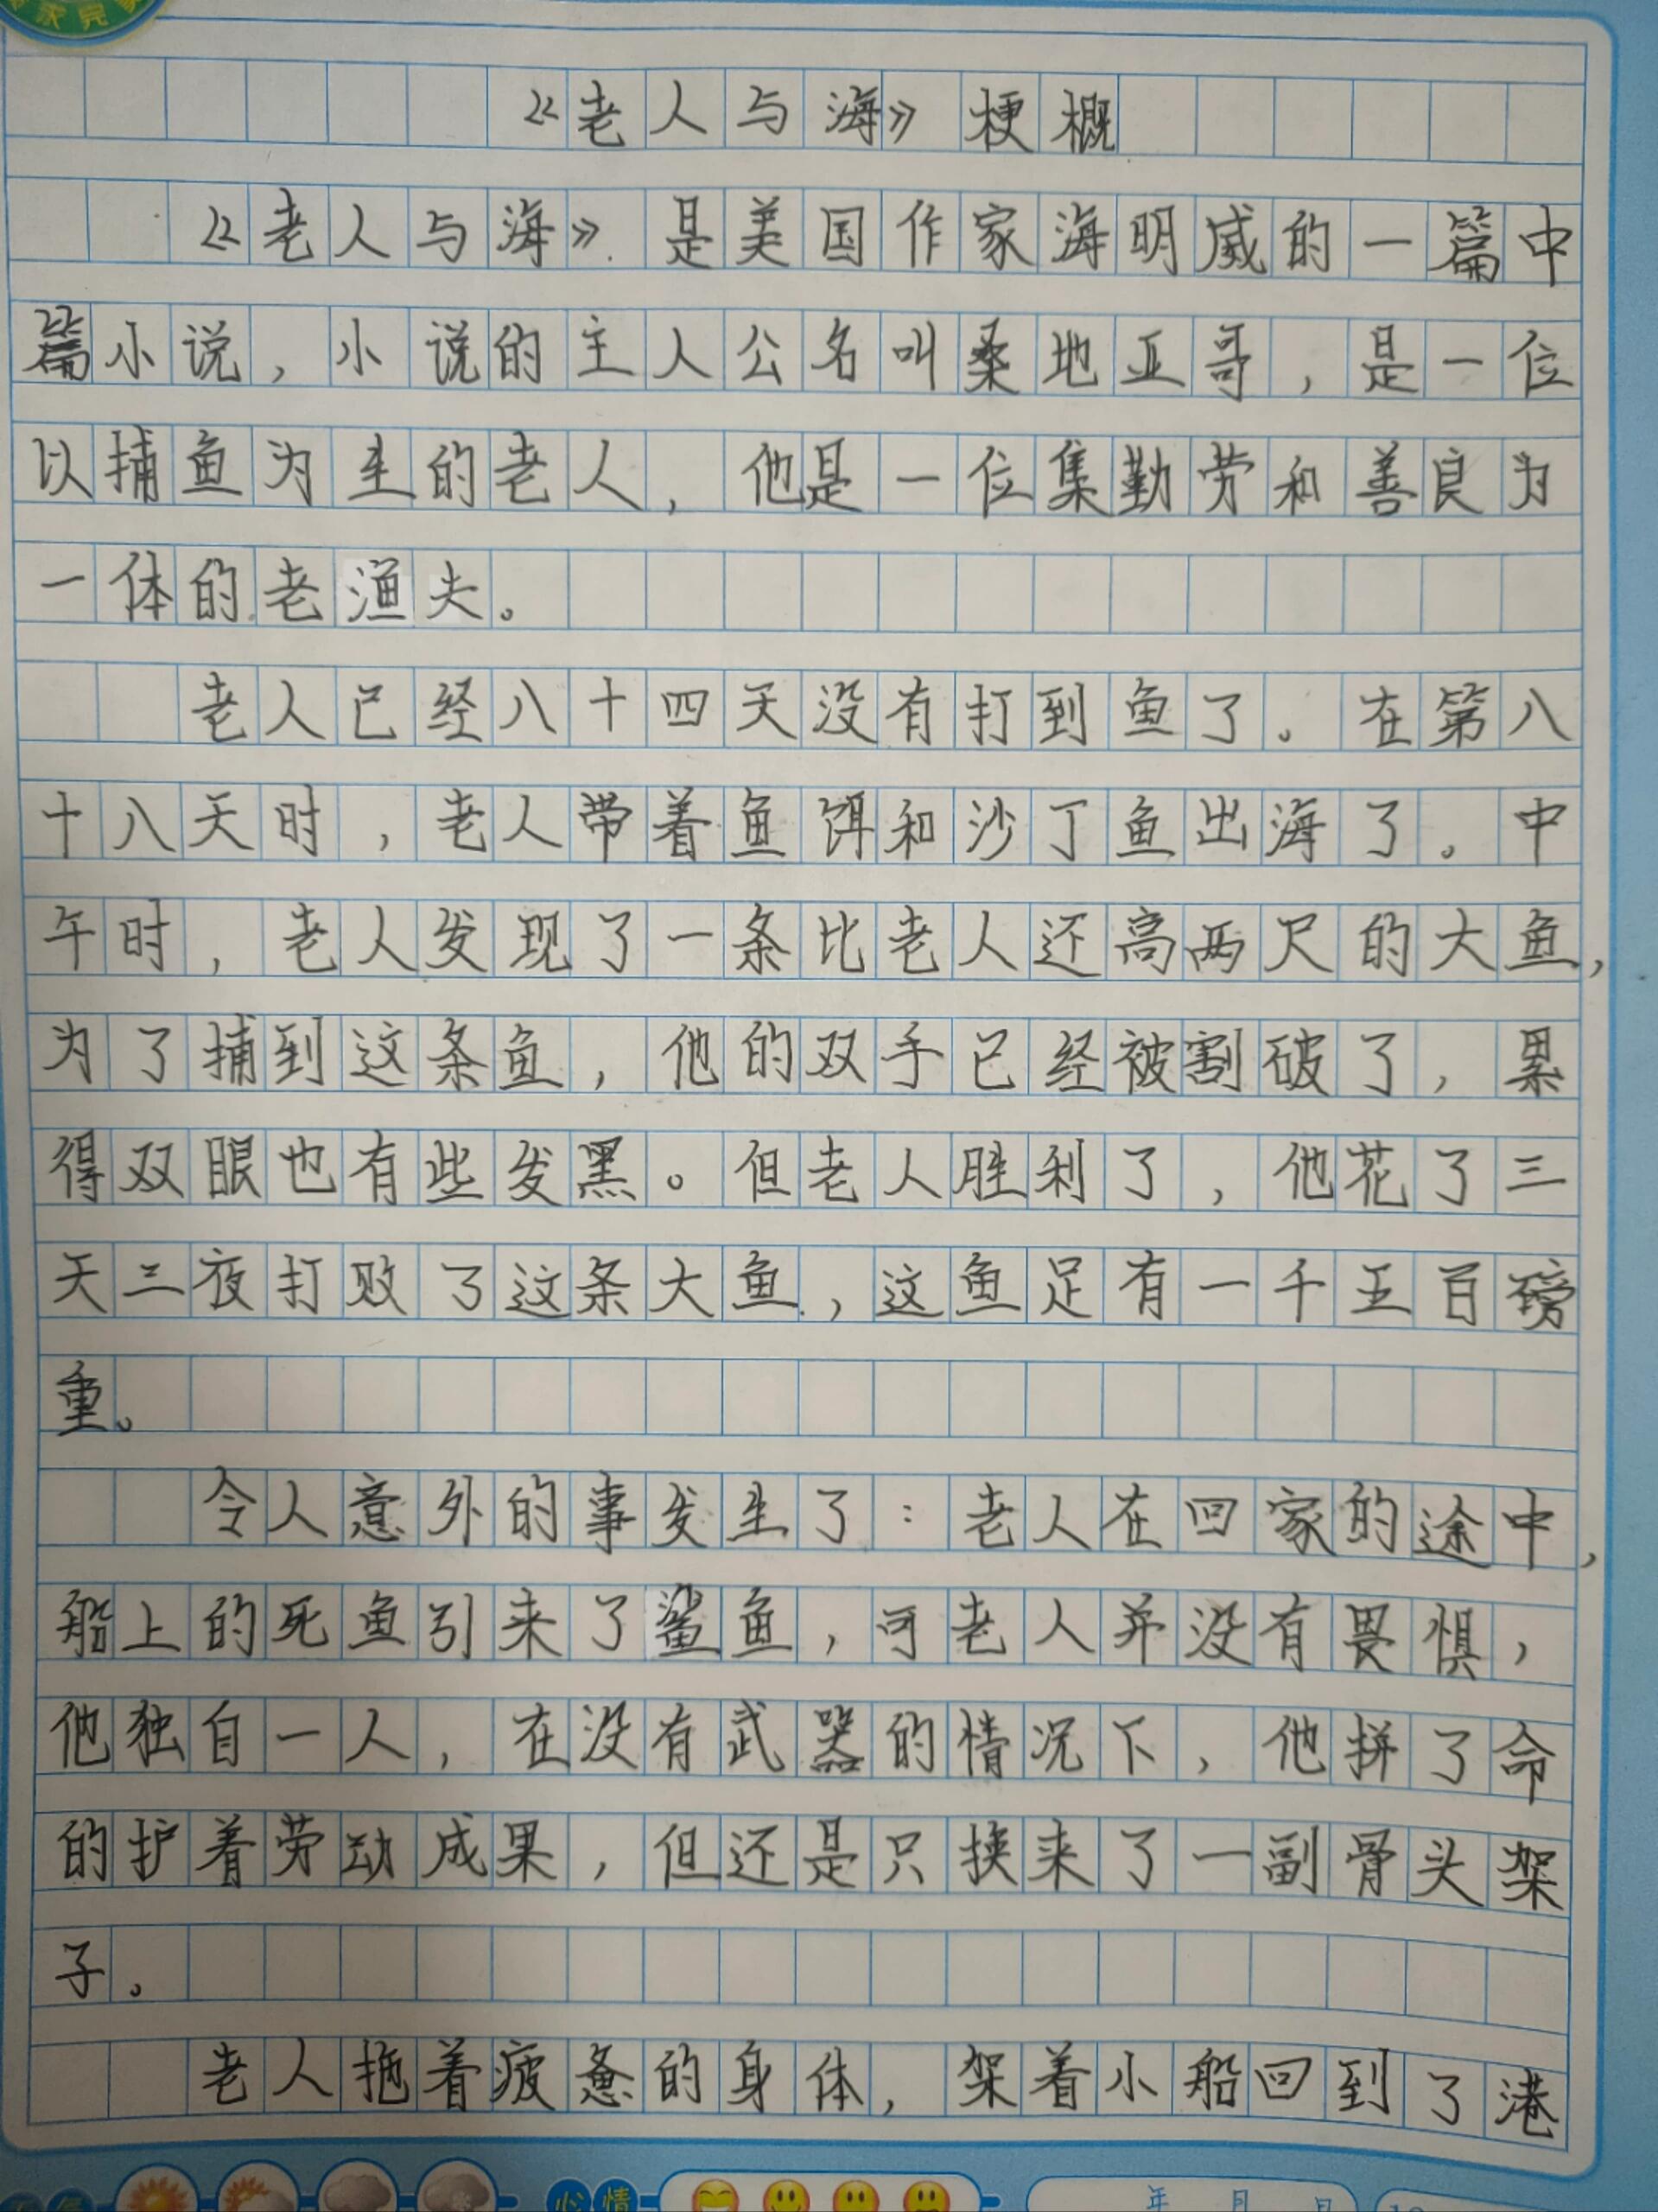 《老人与海》梗概
《老人与海》是美国作家海明威的一篇中
篇小说，小说的主人公名叫桑地亚哥，是一位
以捕鱼为生的老人，他是一位集勤劳和善良为
一体的老渔夫。
老人已经八十四天没有打到鱼了。在第八
十八天时，老人带着鱼饵和沙丁鱼出海了。中
午时，老人发现了一条比老人还高两尺的大鱼，
为了捕到这条鱼，他的双手已经被割破了，累
得双眼也有些发黑。但老人胜利了，他花了三
天三夜打败了这条大鱼，这鱼足有一千五百磅
重。
令人意外的事发生了：老人在回家的途中，
船上的死鱼引来了鲨鱼，可老人并没有畏惧，
他独自一人，在没有武器的情况下，他拼了命
的护着劳动成果，但还是只换来了一副骨头架
子。
老人拖着疲惫的身体，架着小船回到了港
心情
年 月 日